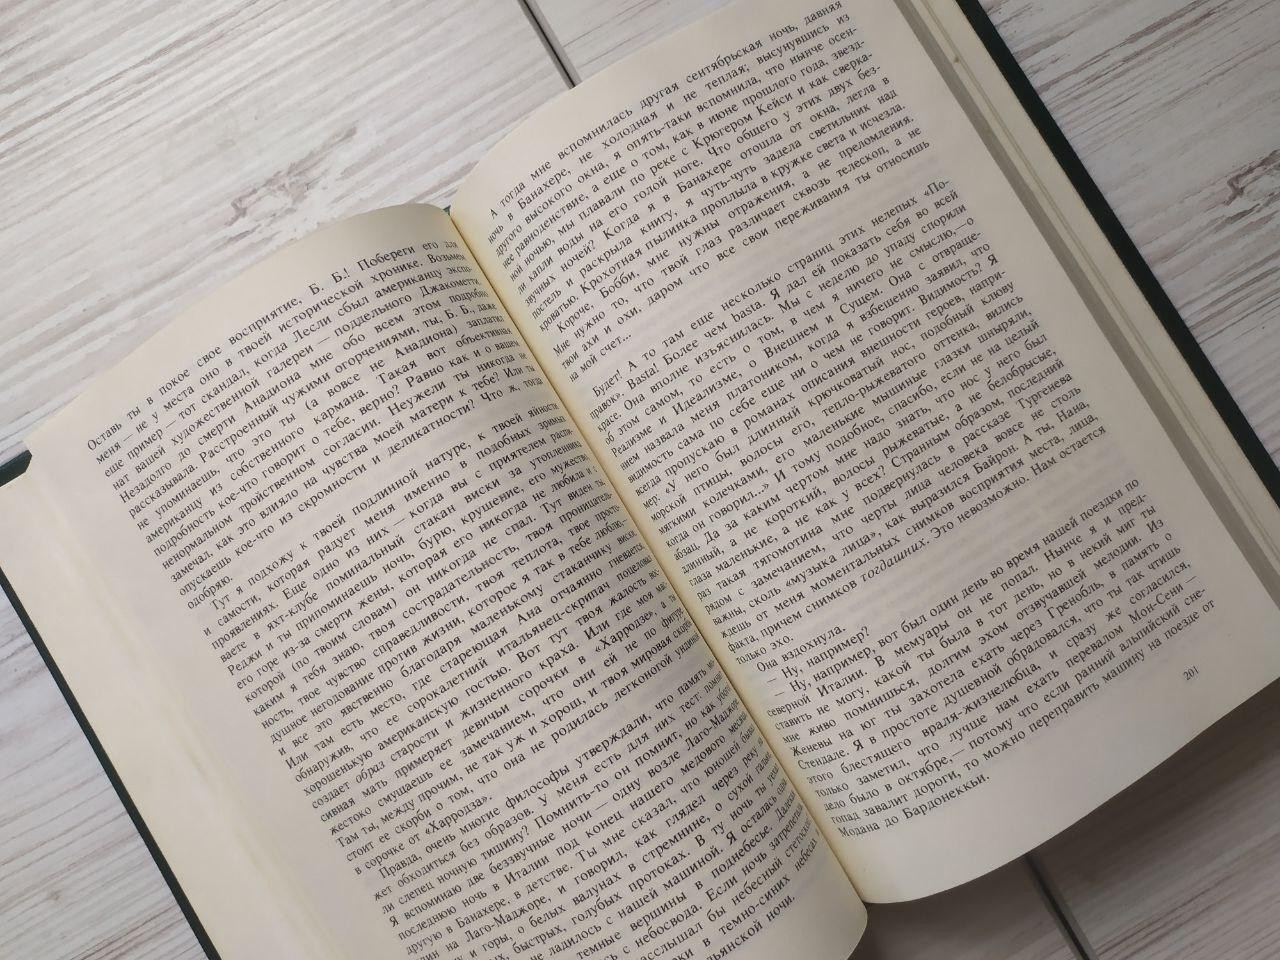 Оставь ты в покое свое восприятие, Б. Б.! Побереги его для
меня — не у места оно в твоей исторической хронике. Возьмем
еще пример — тот скандал, когда Лесли сбыл американцу экспо-
нат вашей художественной галереи — поддельного Джакометти.
Незадолго до смерти Анадиона мне обо всем этом подробно
рассказывала. Расстроенный чужими огорчениями, ты, Б. Б., даже
не упоминаешь, что это ты (а вовсе не Анадиона) заплатил
американцу из собственного кармана. Такая вот объективная
подробность кое-что говорит о тебе, верно? Равно как и о вашем
ненормальном тройственном согласии. Неужели ты никогда не
замечал, как это влияло на чувства моей матери к тебе? Или ты
опускаешь кое-что из скромности и деликатности? Что ж, тогда
одобряю.
Тут я подхожу к твоей подлинной натуре, к твоей яйности
и самости, которая радует меня именно в подобных зримых
проявлениях. Еще одно из них — когда вы с приятелем распи-
ваете в яхт-клубе поминальный стакан виски за утопленника
Реджи и ты припоминаешь ночь, бурю, крушение, его мужество,
его горе из-за смерти жены, которая его никогда не любила и с
которой (по твоим словам) он никогда не спал. Тут виден ты,
каким я тебя знаю, твоя сострадательность, твоя проницатель-
ность, твое чувство справедливости, твоя теплота, твое просто-
душное негодование против жизни, которое я так в тебе люблю,—
и все это явственно благодаря маленькому стаканчику виски.
Или там есть место, где стареющая Ана отчаянно гневается,
обнаружив, что ее сорокалетний итальянец-скрипач поцеловал
хорошенькую американскую гостью. Вот тут твоя жалость вос-
создает образ старости и жизненного краха. Или где моя мас-
сивная мать примеряет девичьи сорочки в «Харродзе», а ты
жестоко смущаешь ее замечанием, что они ей не по фигуре.
Там ты, между прочим, не так уж и хорош, и твоя мировая скорбь
стоит ее скорби о том, что она не родилась легконогой ундиной
в сорочке от «Харродза».
Правда, очень многие философы утверждали, что память мо-
жет обходиться без образов. У меня есть для них тест: помнит
ли слепец ночную тишину? Помнить-то он помнит, но как убого!
Я вспоминаю две беззвучные ночи — одну возле Лаго-Маджоре,
последнюю ночь в Италии под конец нашего медового месяца,
другую в Банахере, в детстве. Ты мне сказал, что юношей был
один на Лаго-Маджоре, и говорил, как глядел через реку на
и горы, о белых валунах в стремнине, о сухой гальке
быстрых, голубых протоках. В ту ночь ты тоже
не ладилось с нашей машиной. Я осталась одна
темные вершины в поднебесье. Далеко
с небосвода. Если ночь затрепетала
расслышал бы небесный стетоскоп
в темно-синих небесах
ночи.
А тогда мне вспомнилась другая сентябрьская ночь, давняя
ночь в Банахере, не холодная и не теплая; высунувшись из
другого высокого окна, я опять-таки вспомнила, что нынче осен-
нее равноденствие, а еще о том, как в июне прошлого года, звезд-
ной ночью, мы плавали по реке с Крюгером Кейси и как сверка-
ли капли воды на его голой ноге. Что общего у этих двух без-
звучных ночей? Когда я в Банахере отошла от окна, легла в
постель и раскрыла книгу, я чуть-чуть задела светильник над
кроватью. Крохотная пылинка проплыла в кружке света и исчезла.
Короче, Бобби, мне нужны отражения, а не преломления.
Мне нужно то, что твой глаз различает сквозь телескоп, а не
твои ахи и охи, даром что все свои переживания ты относишь
на мой счет...
Будет! А то там еще несколько страниц этих нелепых «По-
правок». Basta! Более чем basta. Я дал ей показать себя во всей
красе. Она вполне изъяснилась. Мы с неделю до упаду спорили
об этом самом, то есть о том, в чем я ничего не смыслю,— о
Реализме и Идеализме, о Внешнем и Сущем. Она с отвраще-
нием назвала меня платоником, когда я взбешенно заявил, что
видимость сама по себе еще ни о чем не говорит. Видимость? Я
всегда пропускаю в романах описания внешности героев, напри-
мер: «У него был длинный крючковатый нос, подобный клюву
морской птицы, волосы его, тепло-рыжеватого оттенка, вились
мягкими колечками, его маленькие мышиные глазки шныряли,
когда он говорил...» И тому подобное, спасибо, если не на целый
абзац. Да за каким чертом мне надо знать, что нос у него был
длинный, а не короткий, волосы рыжеватые, а не белобрысые,
глаза маленькие, а не как у всех? Странным образом, последний
раз такая тягомотина мне подвернулась в рассказе Тургенева
рядом с замечанием, что черты лица человека вовсе не столь
важны, сколь «музыка лица», как выразился Байрон. А ты, Нана,
ждешь от меня моментальных снимков восприятия места, лица,
факта, причем снимков тогдашних. Это невозможно. Нам остается
только эхо.
Она вздохнула.
— Ну, например?
— Ну, например, вот был один день во время нашей поездки по
северной Италии. В мемуары он не попал. Нынче я и пред-
ставить не могу, какой ты была в тот день, но в некий миг ты
мне живо помнишься, долгим эхом отзвучавшей мелодии. Из
Женевы на юг ты захотела ехать через Гренобль, в память о
Стендале. Я в простоте душевной обрадовался, что ты так чтишь
этого блестящего враля-жизнелюбца, и сразу же согласился,
только заметил, что лучше нам ехать перевалом Мон-Сени —
дело было в октябре,— потому что если ранний альпийский сне-
гопад завалит дороги, то можно переправить машину на поезде от
Модана до Бардонеккьи.
201